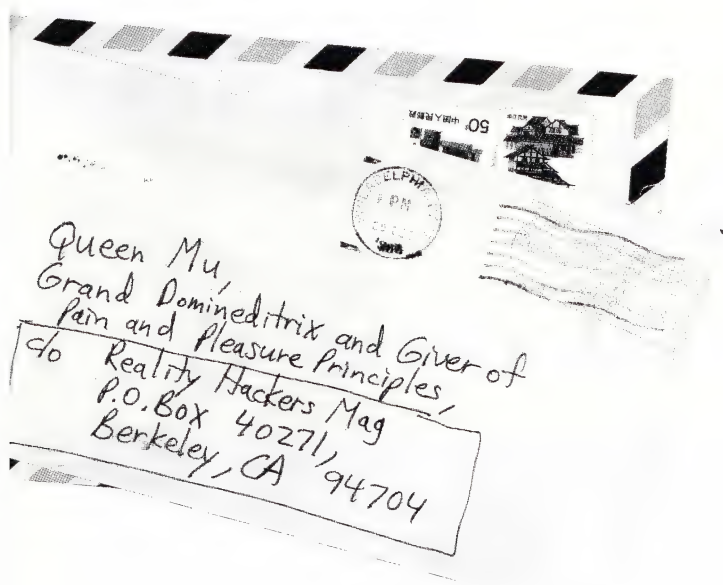 中国人民邮政 50分
DELPHI
PM
Queen Mu,
Grand Domineditrix and Giver of
Pain and Pleasure Principles,
c/o Reality Hackers Mag
P.O. Box 40271,
Berkeley, CA 94704